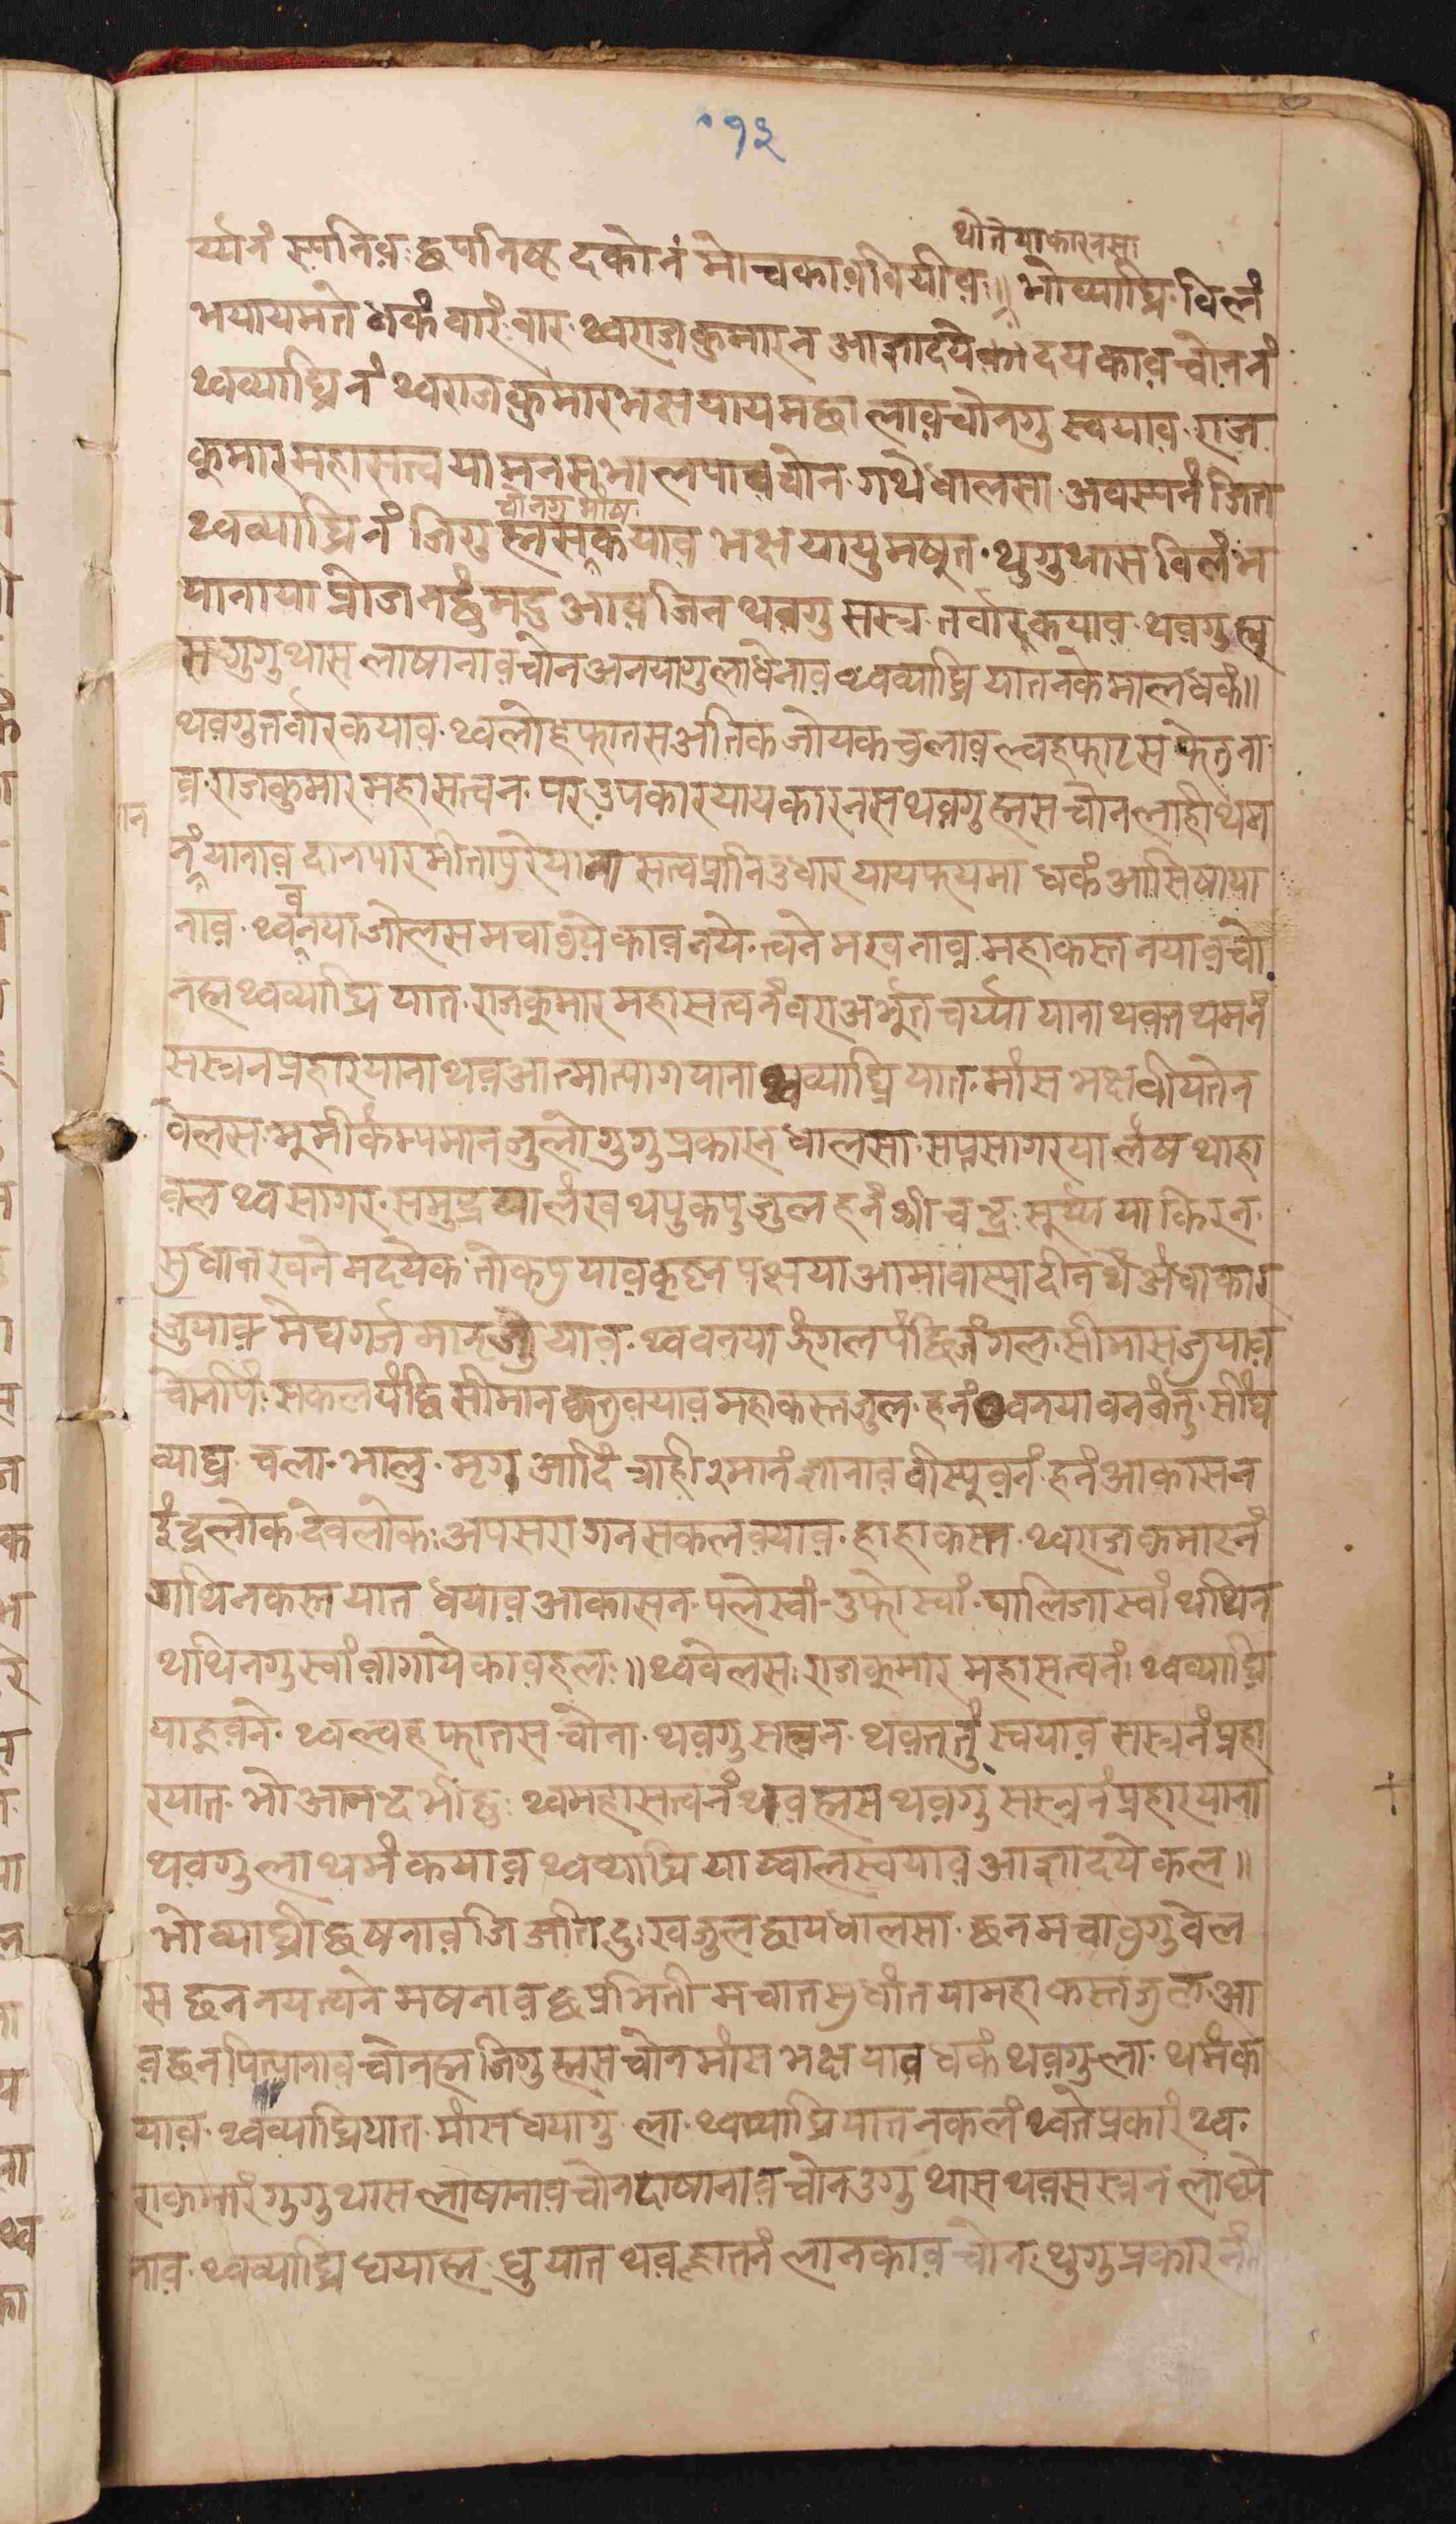 १३
थौतेयाकारनसा
र्य्यनं स्पनिव़ः छपनिष्ट दकोनं मोचकाव़ बियीव़ः॥ भोव्याघ्रि विलं
भयायमते धकं वारं वार थ्वराजकुमारन आज्ञादयेका दयकाव़ च्वोननं
थ्वव्याघ्रिनं थ्वराजकुमारभक्षयायमछा लाव़चोनगु स्वयाव़ राज
कुमारमहासत्त्वया मनस भालपाव़चोन गथेधालसा अवस्यनं जित
चोनगु मांष
थ्वव्याघ्रिनं जिगु ह्मसकयाव़ भक्षयायुमषुत थुगुथास विलंभ
यानाया प्रोजनछुंमदु आव़ जिन थव़गु सस्त्र तर्वारकयाव़ थव़गु ह्म
स गुगुथास लाषानाव़चोन अनयागुलाधेनाव़ थ्वव्याघ्रि यातनकेमाल धकं॥
थव़गुतर्वारकयाव़ थ्वलोहफातसअतिकजोयकचुलाव़ ल्वहफाटस फेतुना
व़ राजकुमारमहासत्वन पर उपकारयायकारनस थव़गुह्मसचोनलाहीथम
नं यानाव़ दानपारमीतापुरेयाना सत्वप्रानिउधारयायफयमा धकं आसिषाया
व
नाव़ थ्वनया ओलस मचाबुयेकाव़नये त्वने मखनाव़ महाकस्त नयाव़चो
नह्म थ्वव्याघ्रि यात राजकुमारमहासत्वनंवरा अर्भुतचर्य्या याना थव़त थमनं
सस्त्रनप्रहारयाना थव़आत्मात्यागयाना थ्वव्याघ्रियात मांस भक्षबीयतेन
वेलस भुमीकंम्पमानजुलो गुगुप्रकारन धालसा सप्तसागरया लंष थाहा
व़ल थ्वसागर समुद्रया लंख थपुकपुजुल हनं श्रीचन्द्र सुर्य्यया किरन
सुधान्त खने मदयेक तोकपुयाव़ कृष्न पक्षया आमावास्यादीन थें अंधाकार
जुयाव़ मेघगर्जमानजुयाव़ थ्ववनया जंगलपंछि जंगल सीमासजुयाव़
चोनपिं सकलपंछि सीमान कुतुवयाव़ महाकस्तजुल हनं वनया वनजंतु सींघ
व्याघ्र चला भालु मृग आदिं त्राहीरमानं ज्ञानाव़ बीस्युव़नं हनं आकासन
इंद्रलोक देवलोक अपसरागनसकलवयाव़ हाहाकस्त थ्वराजकुमारनं
गथिनकस्तयात धयाव़ आकासन पलेस्वां उफोस्वां पालिजास्वां थथिन
थथिनगुस्वां व़ागायेकाव़हल॥ थ्ववेलस राजकुमार महासत्वनं थ्वव्याघ्रि
याह्नव़ने थ्वल्वहफातस चोना थव़गुसस्त्रन थव़ततुं स्वयाव़ सस्त्रनंप्रहा
रयात भोआनन्दभीछु थ्वमहासत्वनंथव़ह्मस थव़गु सस्त्रनंप्रहारयाना
थव़गुलाथमंकयाव़ थ्वव्याघ्रि याख्वालस्वयाव़ आज्ञादयेकल॥
भोव्याघ्रीछषनाव़ जि अतिदुःखजुल छायधालसा छनमचाबुगुवेल
स छन नयत्वने मषनाव़ छप्रभिती मचातसुधांतयामहाकस्तजुल आ
व़ छनपित्यानाव़चोनह्म जिगुह्मसचोनमांस भक्षयाव़ धकं थव़गुला थमंक
याव़ थ्वव्याघ्रियात मांसधयागु ला थ्वव्याघ्रियातनकलं थ्वतेप्रकारं थ्व
राकुमारंगुगुथासलाषानाव़चोनदाषानाव़चोन उगुथासथव़सस्त्रनलाध्ये
नाव़ थ्वव्याघ्रि धयाह्म धुयात थव़ह्नातनं लानकाव़चोन थुगुप्रकारनं